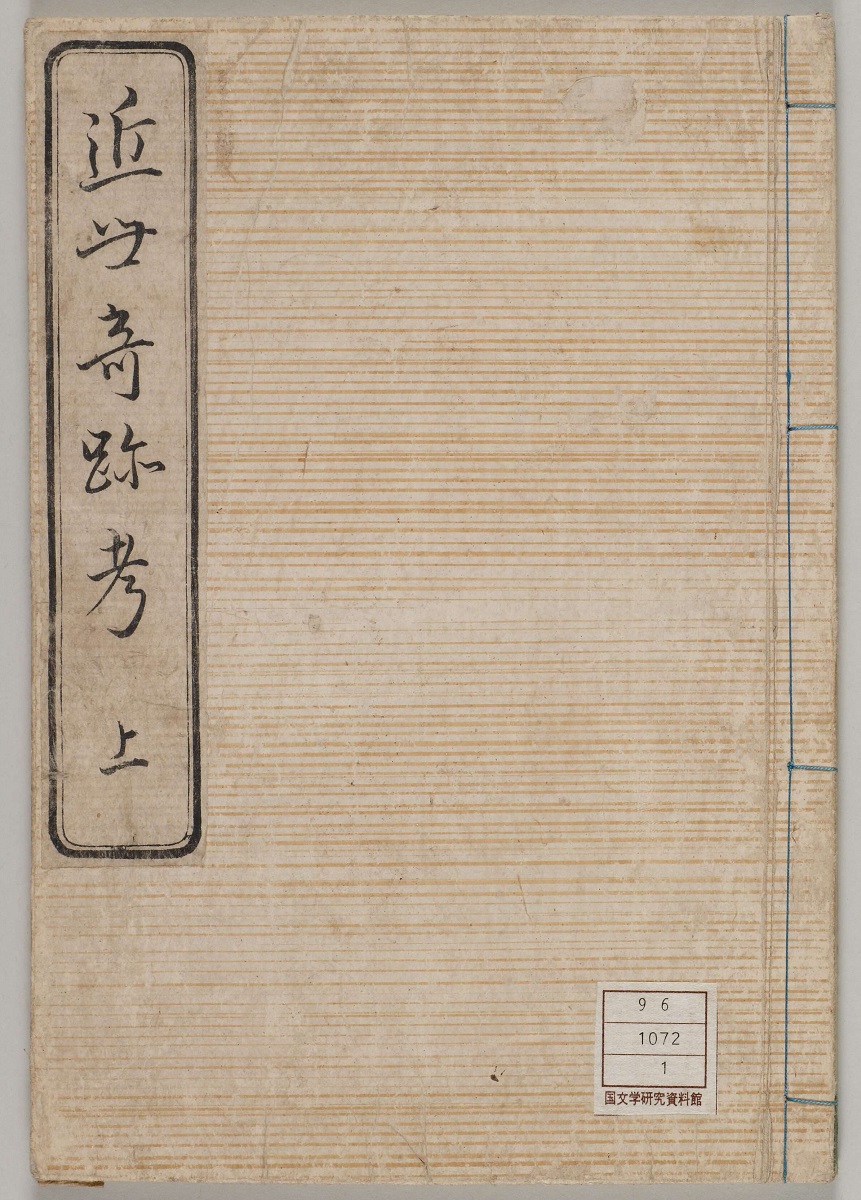 近世奇跡考 上
96
1072
1
国文学研究資料館